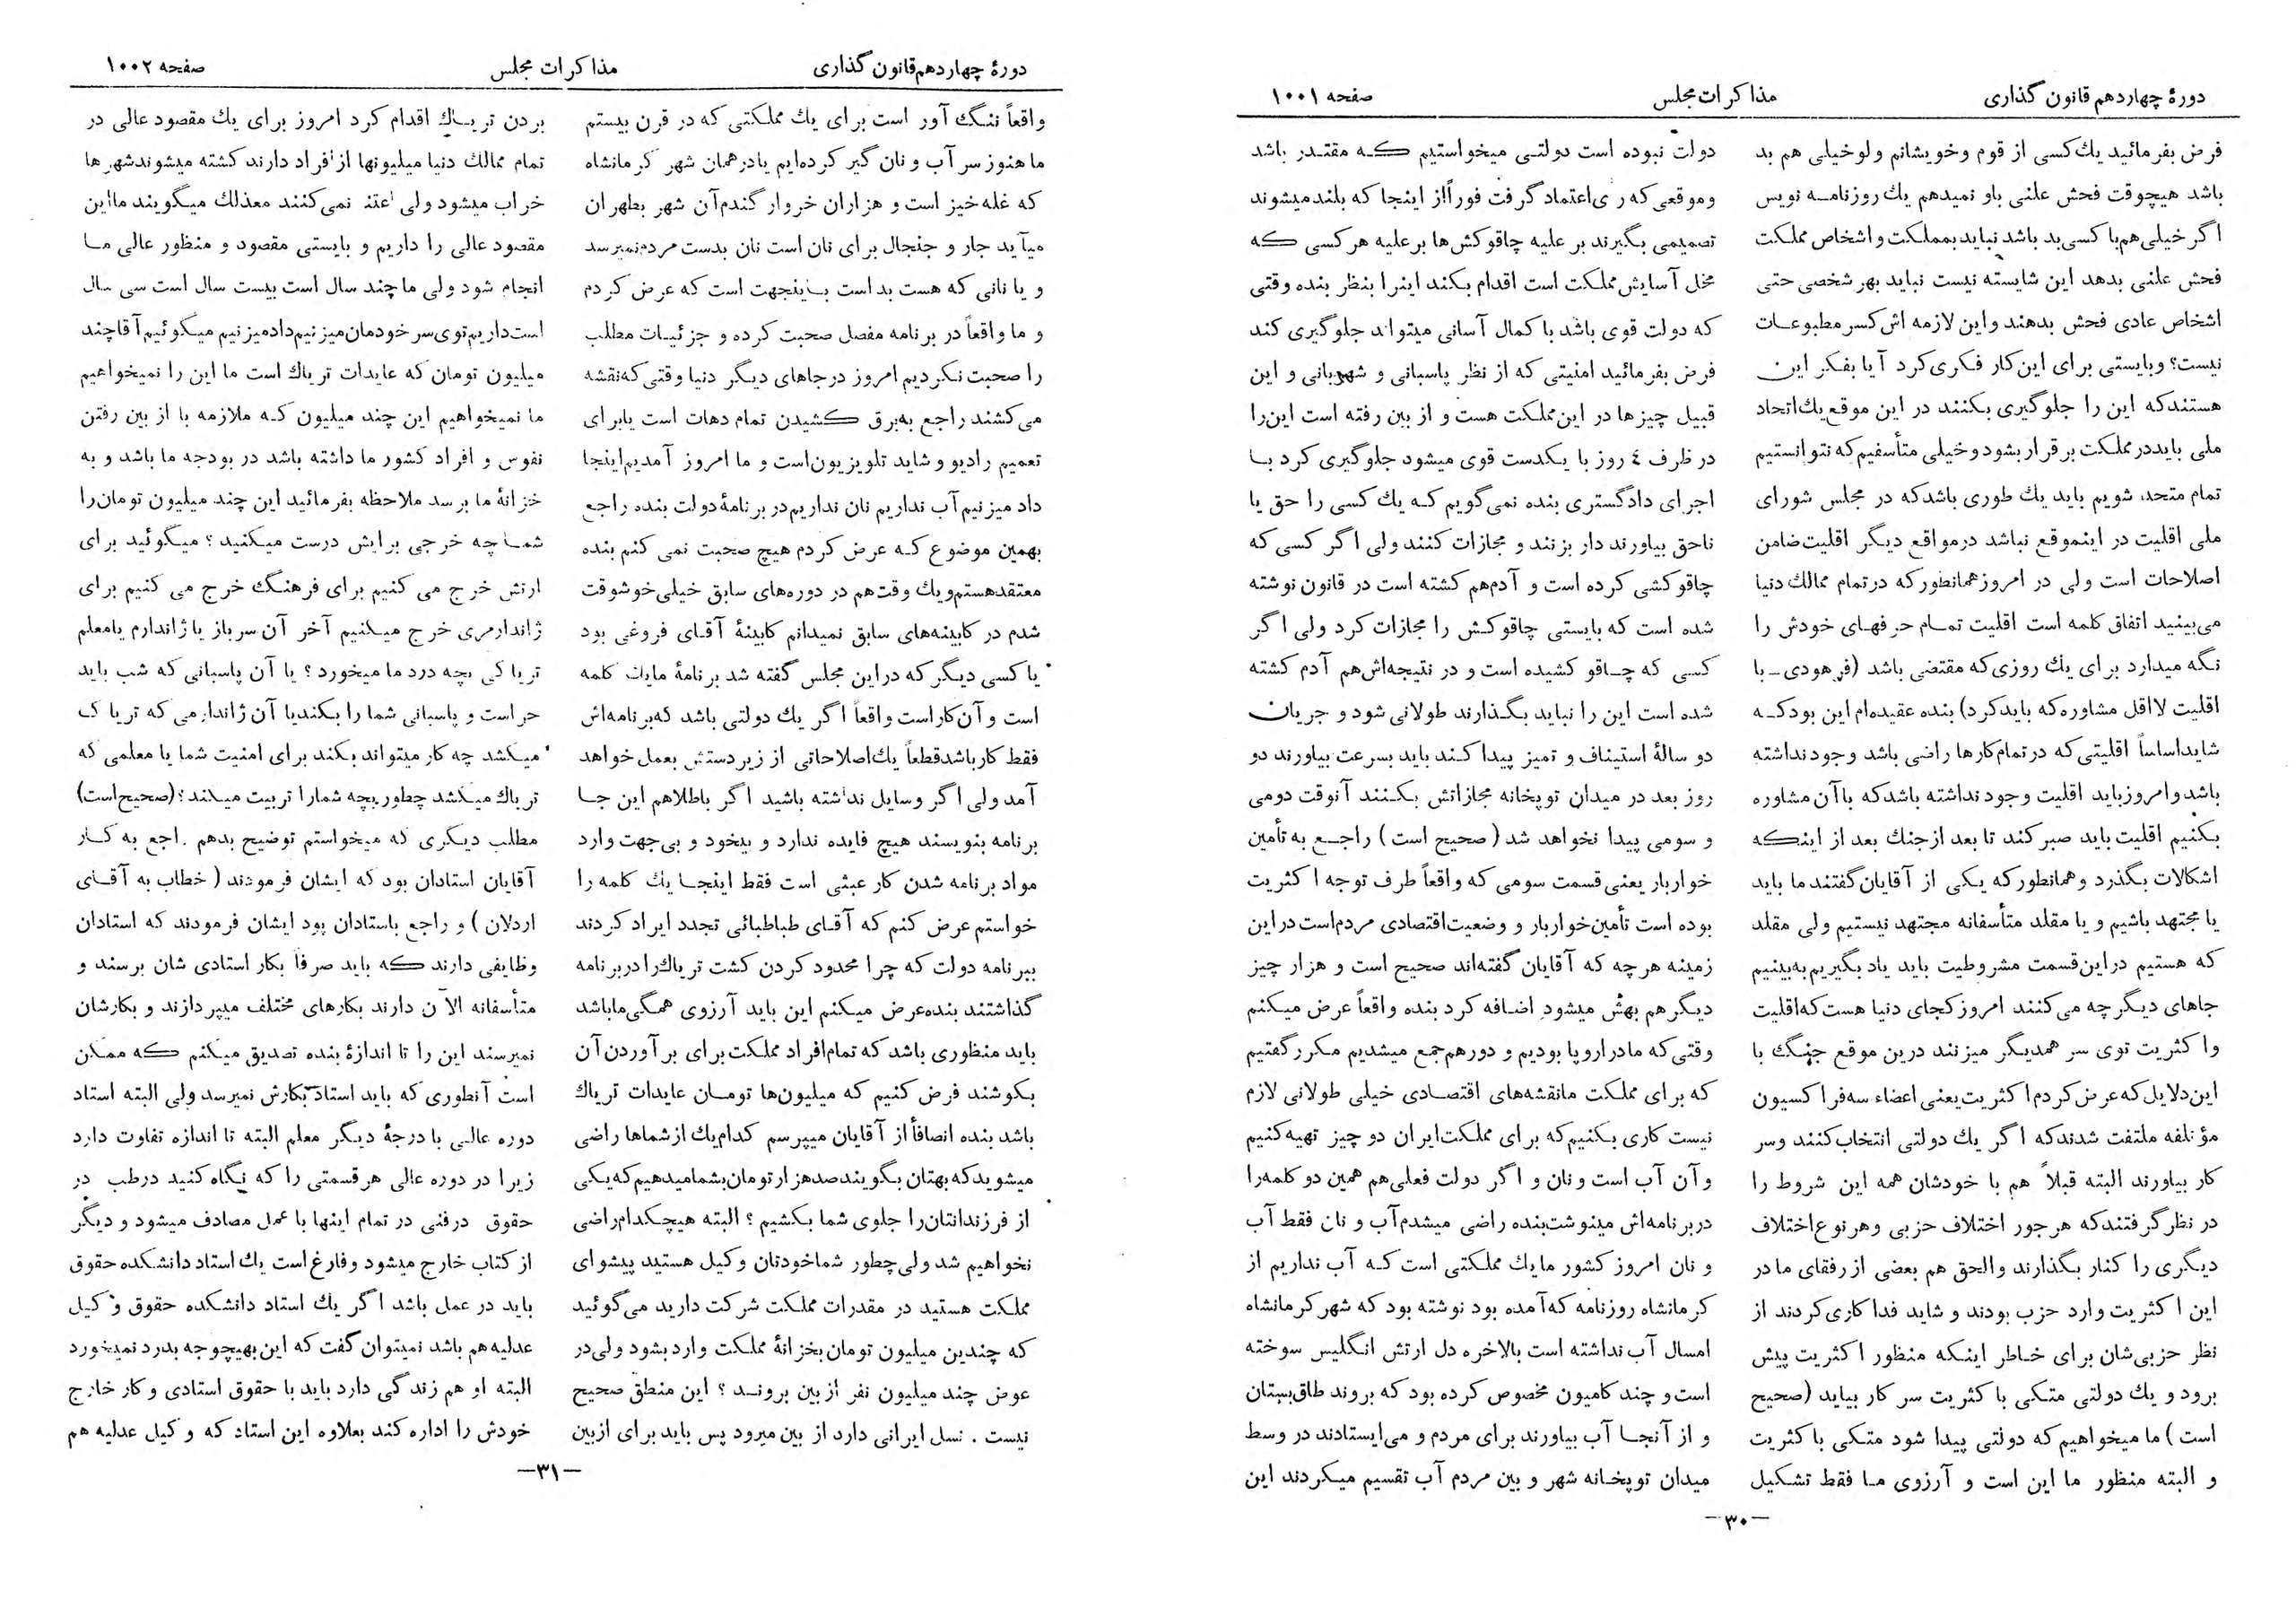 دورهٔ چهاردهم قانون گذاری
مذاکرات مجلس
صفحه ۱۰۰۱
فرض بفرمائید یك کسی از قوم وخویشانم ولو خیلی هم بد
باشد هیچوقت فحش علنی باو نمیدهم یك روزنامه نویس
اگر خیلی هم با کسی بد باشد نباید بمملکت و اشخاص مملکت
فحش علنی بدهد این شایسته نیست نباید بهر شخصی حتی
اشخاص عادی فحش بدهند واین لازمه اش کسر مطبوعات
نیست؟ وبایستی برای این کار فکری کرد آیا بفکر این
هستند که این را جلوگیری بکنند در این موقع یك اتحاد
ملی باید در مملکت برقرار بشود و خیلی متأسفیم که نتوانستیم
تمام متحد، شویم باید یك طوری باشد که در مجلس شورای
ملی اقلیت در اینموقع نباشد درمواقع دیگر اقلیت ضامن
اصلاحات است ولی در امروز همانطور که در تمام ممالك دنیا
می‌بینید اتفاق کلمه است اقلیت تمام حرفهای خودش را
نگه میدارد برای یك روزی که مقتضی باشد (فرهودی ـ با
اقلیت لااقل مشاوره که باید کرد) بنده عقیده‌ام این بود که
شاید اساساً اقلیتی که در تمام کارها راضی باشد وجود نداشته
باشد و امروز باید اقلیت وجود نداشته باشد که با آن مشاوره
بکنیم اقلیت باید صبر کند تا بعد از جنك بعد از اینکه
اشکالات بگذرد و همانطور که یکی از آقایان گفتند ما باید
یا مجتهد باشیم و یا مقلد متأسفانه مجتهد نیستیم ولی مقلد
که هستیم در این قسمت مشروطیت باید یاد بگیریم به‌بینیم
جاهای دیگر چه می‌کنند امروز کجای دنیا هست که اقلیت
وا کثریت توی سر همدیگر میزنند درین موقع جنگ با
این دلایل که عرض کردم اکثریت یعنی اعضاء سه فراکسیون
مؤتلفه ملتفت شدند که اگر یك دولتی انتخاب کنند وسر
کار بیاورند البته قبلاً هم با خودشان همه این شروط را
در نظر گرفتند که هر جور اختلاف حزبی و هر نوع اختلاف
دیگری را کنار بگذارند والحق هم بعضی از رفقای ما در
این اکثریت وارد حزب بودند و شاید فداکاری کردند از
نظر حزبی‌شان برای خاطر اینکه منظور اکثریت پیش
برود و یك دولتی متکی با کثریت سر کار بیاید (صحیح
است) ما میخواهیم که دولتی پیدا شود متکی با کثریت
و البته منظور ما این است و آرزوی ما فقط تشکیل
دولت نبوده است دولتی میخواستیم که مقتدر باشد
وموقعی که رأی اعتماد گرفت فوراً از اینجا که بلند میشوند
تصمیمی بگیرند بر علیه چاقوکش‌ها بر علیه هر کسی که
مخل آسایش مملکت است اقدام بکند اینرا بنظر بنده وقتی
که دولت قوی باشد با کمال آسانی میتواند جلوگیری کند
فرض بفرمائید امنیتی که از نظر پاسبانی و شهربانی و این
قبیل چیزها در این مملکت هست و از بین رفته است این را
در ظرف ٤ روز با یکدست قوی میشود جلوگیری کرد با
اجرای دادگستری بنده نمی‌گویم که یك کسی را حق یا
ناحق بیاورند دار بزنند و مجازات کنند ولی اگر کسی که
چاقو کشی کرده است و آدم هم کشته است در قانون نوشته
شده است که بایستی چاقوکش را مجازات کرد ولی اگر
کسی که چاقو کشیده است و در نتیجه‌اش هم آدم کشته
شده است این را نباید بگذارند طولانی شود و جریان
دو سالهٔ استیناف و تمیز پیدا کند باید بسرعت بیاورند دو
روز بعد در میدان توپخانه مجازاتش بکنند آنوقت دومی
و سومی پیدا نخواهد شد (صحیح است) راجع به تأمین
خواربار یعنی قسمت سومی که واقعاً طرف توجه اکثریت
بوده است تأمین خواربار و وضعیت اقتصادی مردم است در این
زمینه هر چه که آقایان گفته‌اند صحیح است و هزار چیز
دیگر هم بهش میشود اضافه کرد بنده واقعاً عرض میکنم
وقتی که ما در اروپا بودیم و دور هم جمع میشدیم مکرر گفتیم
که برای مملکت ما نقشه‌های اقتصادی خیلی طولانی لازم
نیست کاری بکنیم که برای مملکت ایران دو چیز تهیه کنیم
و آن آب است و نان و اگر دولت فعلی هم همین دو کلمه را
در برنامه‌اش مینوشت بنده راضی میشدم آب و نان فقط آب
و نان امروز کشور ما یك مملکتی است که آب نداریم از
کرمانشاه روزنامه که آمده بود نوشته بود که شهر کرمانشاه
امسال آب نداشته است بالاخره دل ارتش انگلیس سوخته
است و چند کامیون مخصوص کرده بود که بروند طاق بستان
و از آنجا آب بیاورند برای مردم و می‌ایستادند در وسط
میدان توپخانه شهر و بین مردم آب تقسیم میکردند این
—۳۰—
دورهٔ چهاردهم قانون گذاری
مذاکرات مجلس
صفحه ۱۰۰۲
واقعاً ننگ آور است برای یك مملکتی که در قرن بیستم
ما هنوز سر آب و نان گیر کرده‌ایم یا در همان شهر کرمانشاه
که غله خیز است و هزاران خروار گندم آن شهر بطهران
میآید جار و جنجال برای نان است نان بدست مردم نمیرسد
و یا نانی که هست بد است باینجهت است که عرض کردم
و ما واقعاً در برنامه مفصل صحبت کرده و جزئیات مطلب
را صحبت نکردیم امروز در جاهای دیگر دنیا وقتی که نقشه
می‌کشند راجع به برق کشیدن تمام دهات است یا برای
تعمیم رادیو و شاید تلویزیون است و ما امروز آمدیم اینجا
داد میزنیم آب نداریم نان نداریم در برنامهٔ دولت بنده راجع
بهمین موضوع که عرض کردم هیچ صحبت نمی‌کنم بنده
معتقد هستم و یك وقت هم در دوره‌های سابق خیلی خوشوقت
شدم در کابینه‌های سابق نمیدانم کابینهٔ آقای فروغی بود
یا کسی دیگر که در این مجلس گفته شد برنامهٔ ما یك کلمه
است و آن کار است واقعاً اگر یك دولتی باشد که برنامه‌اش
فقط کار باشد قطعاً یك اصلاحاتی از زیر دستش بعمل خواهد
آمد ولی اگر وسایل نداشته باشید اگر باطلا هم این جا
برنامه بنویسند هیچ فایده ندارد و بیخود و بی‌جهت وارد
مواد برنامه شدن کار عبثی است فقط اینجا یك کلمه را
خواستم عرض کنم که آقای طباطبائی تجدد ایراد کردند
ببرنامه دولت که چرا محدود کردن کشت تریاك را در برنامه
گذاشتند بنده عرض میکنم این باید آرزوی همگی ما باشد
باید منظوری باشد که تمام افراد مملکت برای بر آوردن آن
بکوشند فرض کنیم که میلیون‌ها تومان عایدات تریاك
باشد بنده انصافاً از آقایان میپرسم کدام یك از شماها راضی
میشوید که بهتان بگویند صد هزار تومان بشما میدهیم که یکی
از فرزندانتان را جلوی شما بکشیم؟ البته هیچکدام راضی
نخواهیم شد ولی چطور شما خودتان وکیل هستید پیشوای
مملکت هستید در مقدرات مملکت شرکت دارید می‌گوئید
که چندین میلیون تومان بخزانهٔ مملکت وارد بشود ولی در
عوض چند میلیون نفر از بین بروند؟ این منطق صحیح
نیست. نسل ایرانی دارد از بین میرود پس باید برای از بین
بردن تریاك اقدام کرد امروز برای یك مقصود عالی در
تمام ممالك دنیا میلیونها از افراد دارند کشته میشوند شهرها
خراب میشود ولی اعتنا نمی‌کنند معذلك میگویند ما این
مقصود عالی را داریم و بایستی مقصود و منظور عالی ما
انجام شود ولی ما چند سال است بیست سال است سی سال
است داریم توی سر خودمان میزنیم داد میزنیم میگوئیم آقا چند
میلیون تومان که عایدات تریاك است ما این را نمیخواهیم
ما نمیخواهیم این چند میلیون که ملازمه با از بین رفتن
نفوس و افراد کشور ما داشته باشد در بودجه ما باشد و به
خزانهٔ ما برسد ملاحظه بفرمائید این چند میلیون تومان را
شما چه خرجی برایش درست میکنید؟ میگوئید برای
ارتش خرج می کنیم برای فرهنگ خرج می کنیم برای
ژاندارمری خرج میکنیم آخر آن سرباز یا ژاندارم یا معلم
تریاکی بچه درد ما میخورد؟ یا آن پاسبانی که شب باید
حراست و پاسبانی شما را بکند یا آن ژاندارمی که تریاک
میکشد چه کار میتواند بکند برای امنیت شما یا معلمی که
تریاك میکشد چطور بچه شما را تربیت میکند؟ (صحیح است)
مطلب دیگری که میخواستم توضیح بدهم راجع به کار
آقایان استادان بود که ایشان فرمودند (خطاب به آقای
اردلان) و راجع باستادان بود ایشان فرمودند که استادان
وظایفی دارند که باید صرفاً بکار استادی شان برسند و
متأسفانه الآن دارند بکارهای مختلف میپردازند و بکارشان
نمیرسند این را تا اندازهٔ بنده تصدیق میکنم که ممکن
است آنطوری که باید استاد بکارش نمیرسد ولی البته استاد
دوره عالی با درجهٔ دیگر معلم البته تا اندازه تفاوت دارد
زیرا در دوره عالی هر قسمتی را که نگاه کنید در طب در
حقوق درفنی در تمام اینها با عمل مصادف میشود و دیگر
از کتاب خارج میشود و فارغ است یك استاد دانشکده حقوق
باید در عمل باشد اگر یك استاد دانشکده حقوق وکیل
عدلیه هم باشد نمیتوان گفت که این بهیچوجه بدرد نمیخورد
البته او هم زندگی دارد باید با حقوق استادی و کار خارج
خودش را اداره کند بعلاوه این استاد که وکیل عدلیه هم
—۳۱—